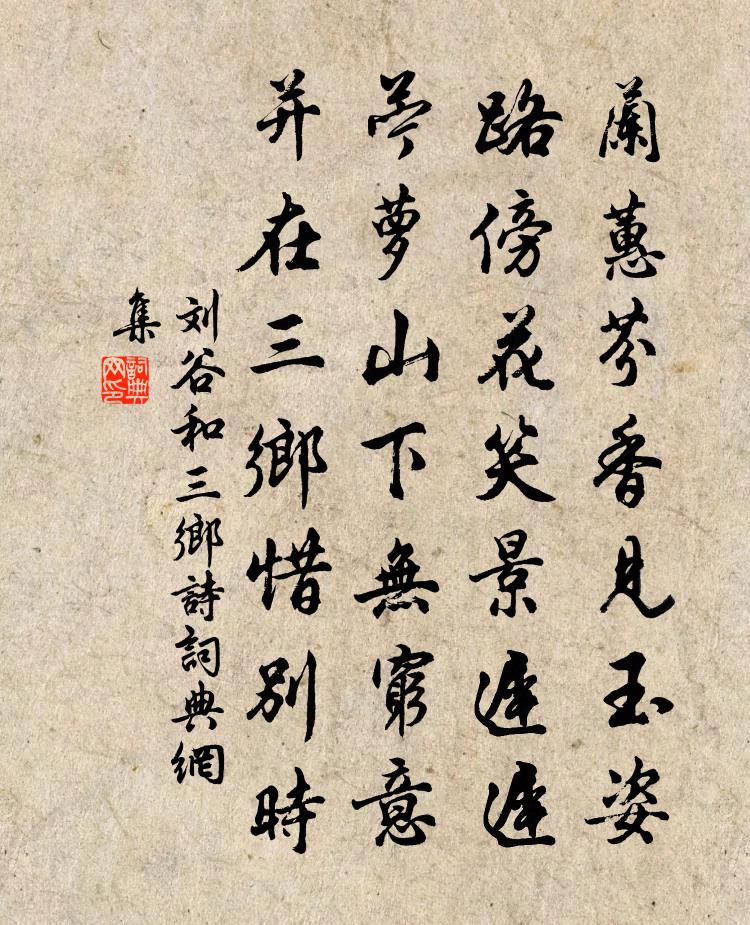 蘭蕙芬香見玉姿
路傍花笑景遲遲
苧蘿山下無窮意
并在三鄉惜別時
刘谷和三鄉詩詞典網
集
詞典
网印